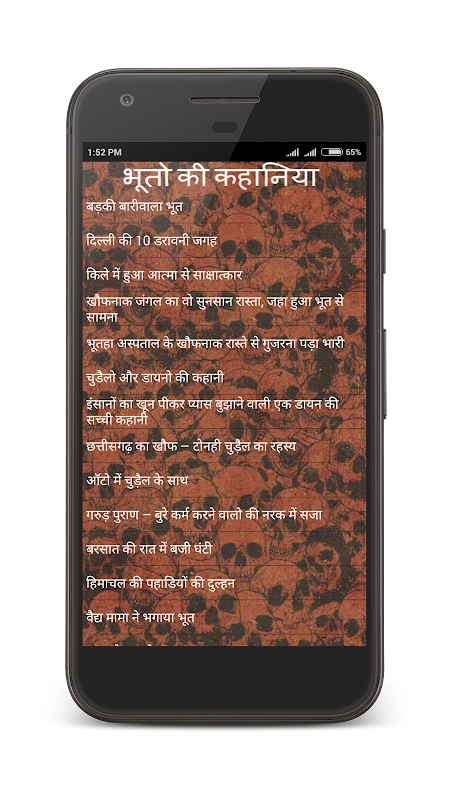 1:52 PM
65%
भूतो की कहानिया
बड़की बारीवाला भूत
दिल्ली की 10 डरावनी जगह
किले में हुआ आत्मा से साक्षात्कार
खौफनाक जंगल का वो सुनसान रास्ता, जहा हुआ भूत से
सामना
भूतहा अस्पताल के खौफनाक रास्ते से गुजरना पड़ा भारी
चुडैलो और डायनो की कहानी
इंसानों का खून पीकर प्यास बुझाने वाली एक डायन की
सच्ची कहानी
छत्तीसगढ़ का खौफ – टोनही चुड़ैल का रहस्य
ऑटो में चुड़ैल के साथ
गरुड़ पुराण – बुरे कर्म करने वालो की नरक में सजा
बरसात की रात में बजी घंटी
हिमाचल की पहाडियों की दुल्हन
वैद्य मामा ने भगाया भूत